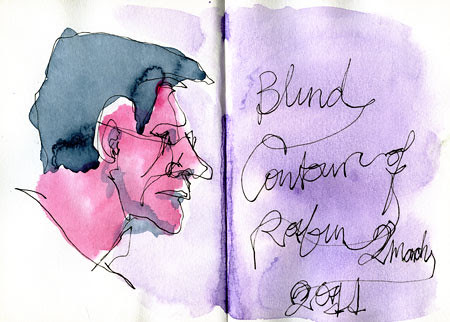 Blind
Contour of
Robin 2 March
2011